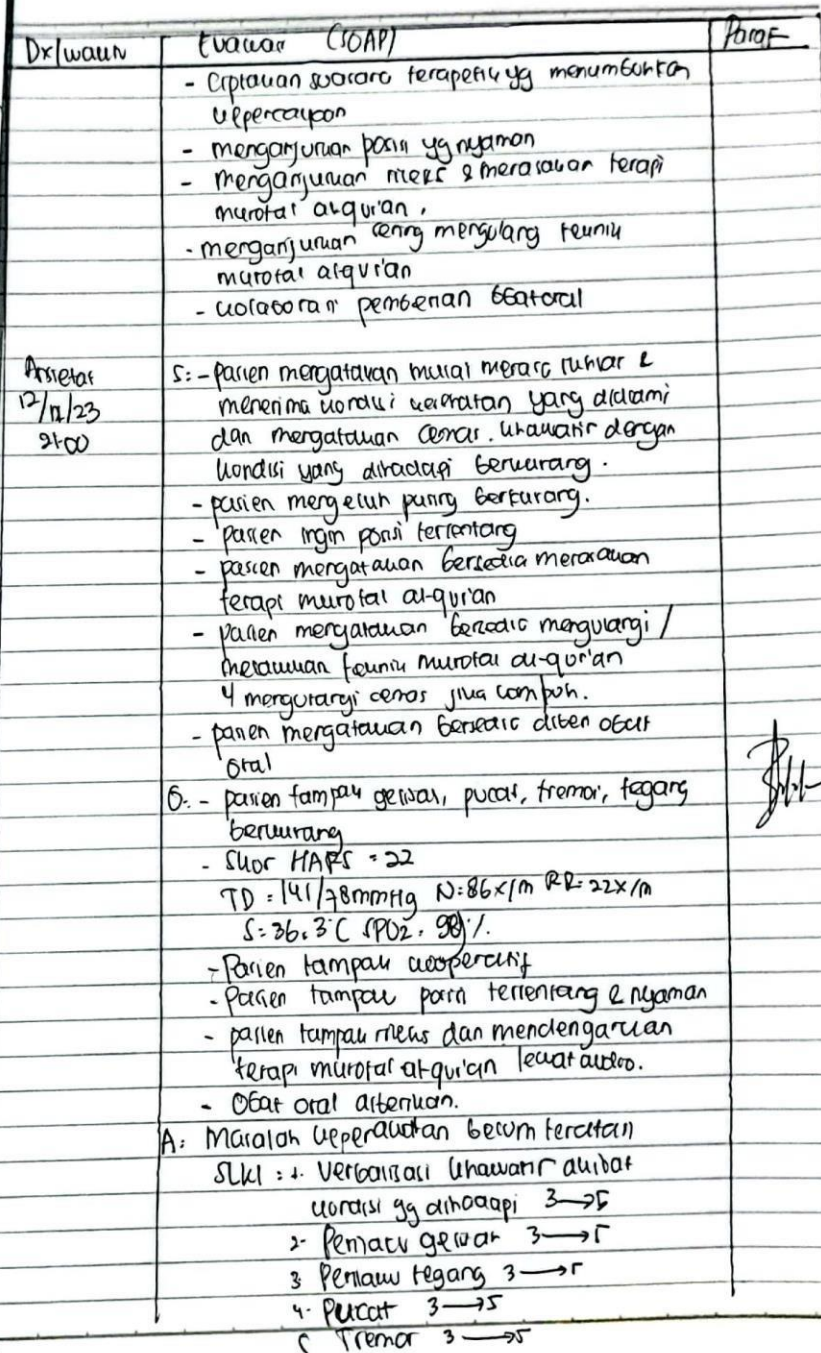 Dx/waktu Evaluasi (SOAP) Paraf
- Ciptakan suasana terapetik yg menumbuhkan
kepercayaan
- menganjurkan posisi yg nyaman
- menganjurkan rileks & merasakan terapi
murotal al-qur'an.
- menganjurkan sering mengulang teknik
murotal al-qur'an
- kolaborasi pemberian obat oral
Ansietas
12/12/23
21.00
S: - pasien mengatakan mulai merasa rileks &
menerima kondisi kesehatan yang dialami
dan mengatakan cemas. khawatir dengan
kondisi yang dihadapi berkurang.
- pasien mengeluh pusing berkurang.
- pasien ingin posisi terlentang
- pasien mengatakan bersedia merasakan
terapi murotal al-qur'an
- pasien mengatakan bersedia mengulangi /
melakukan teknik murotal al-qur'an
u mengurangi cemas jika kambuh.
- pasien mengatakan bersedia diberi obat
oral
O: - pasien tampak gelisah, pucat, tremor, tegang
berkurang
- Skor HARS = 22
TD = 141/78mmHg N: 86x/m RR: 22x/m
S: 36,3°C SPO2: 98%.
- Pasien tampak kooperatif
- Pasien tampak posisi terlentang & nyaman
- pasien tampak rileks dan mendengarkan
terapi murotal al-qur'an lewat audio.
- Obat oral diberikan.
A: Masalah keperawatan belum teratasi
SLKI: 1. Verbalisasi khawatir akibat
kondisi yg dihadapi 3→5
2. Perilaku gelisah 3→5
3. Perilaku tegang 3→5
4. Pucat 3→5
5 Tremor 3→5